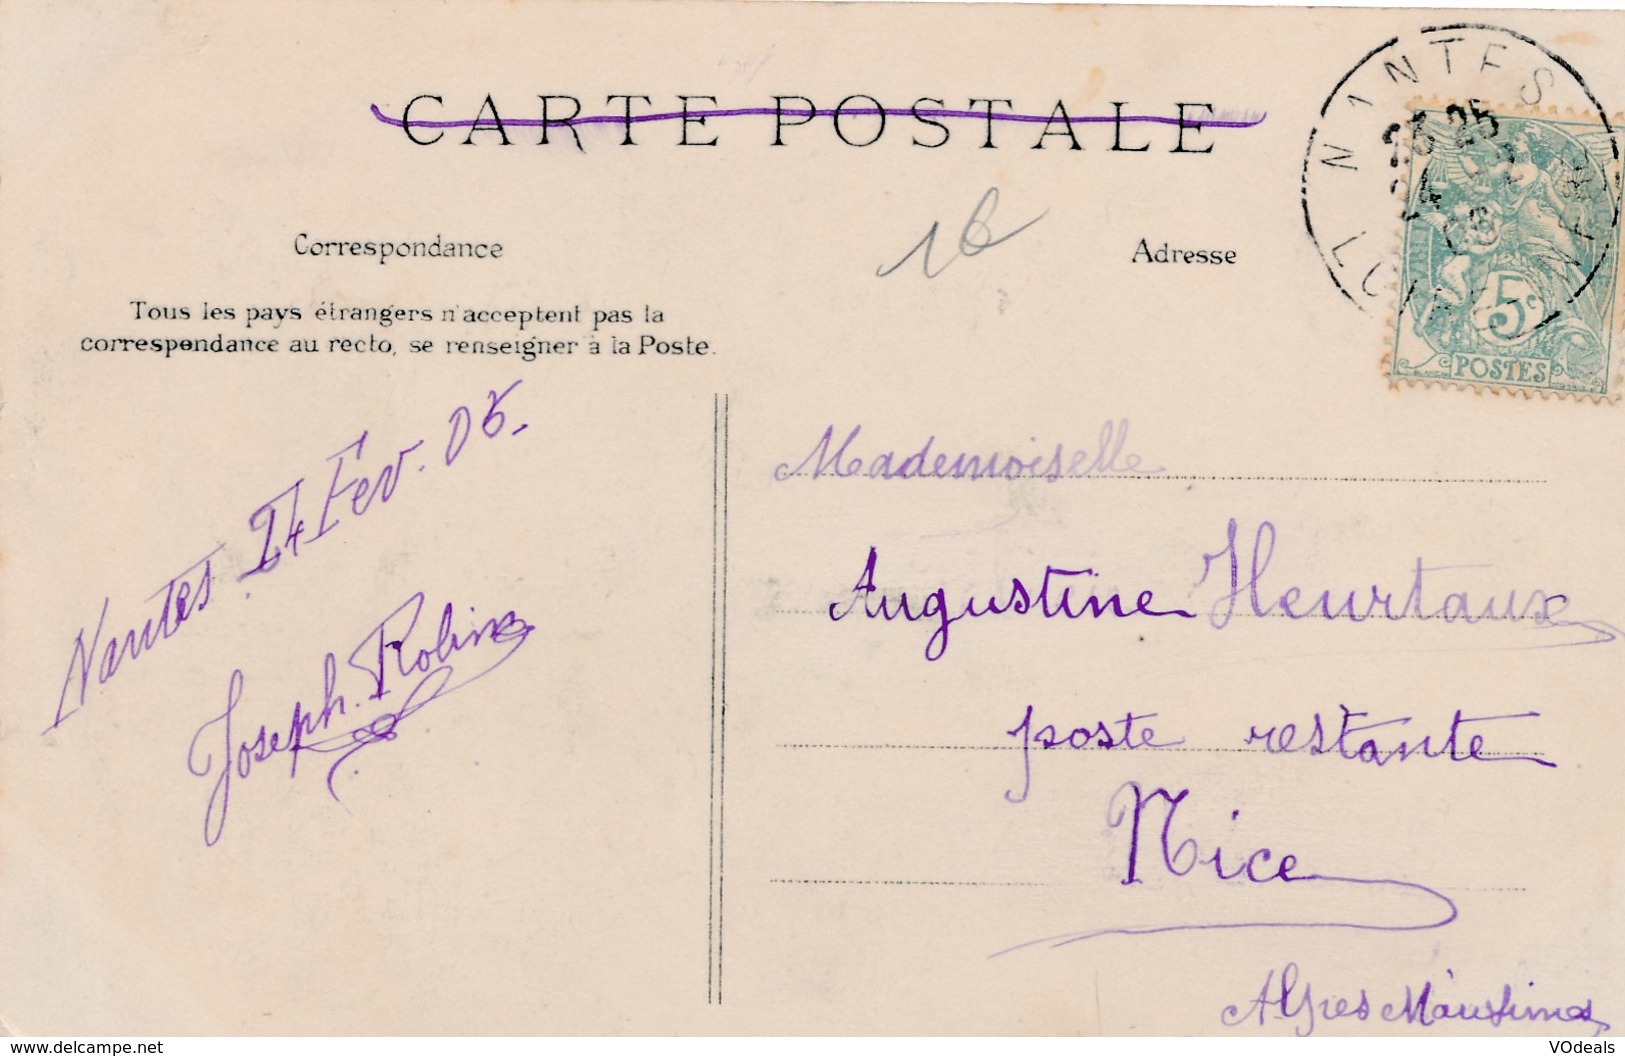 CARTE POSTALE
NANTES
23 25
14 2
06
LOIRE INFRE
16
Correspondance
Adresse
Tous les pays étrangers n'acceptent pas la
correspondance au recto, se renseigner à la Poste.
5c
POSTES
Nantes 14 Fev. 06.
Joseph. Robin
Mademoiselle
Augustine Heurtaux
poste restante
Nice
Alpes Maritimes
https://www.delcampe.net
VOdeals